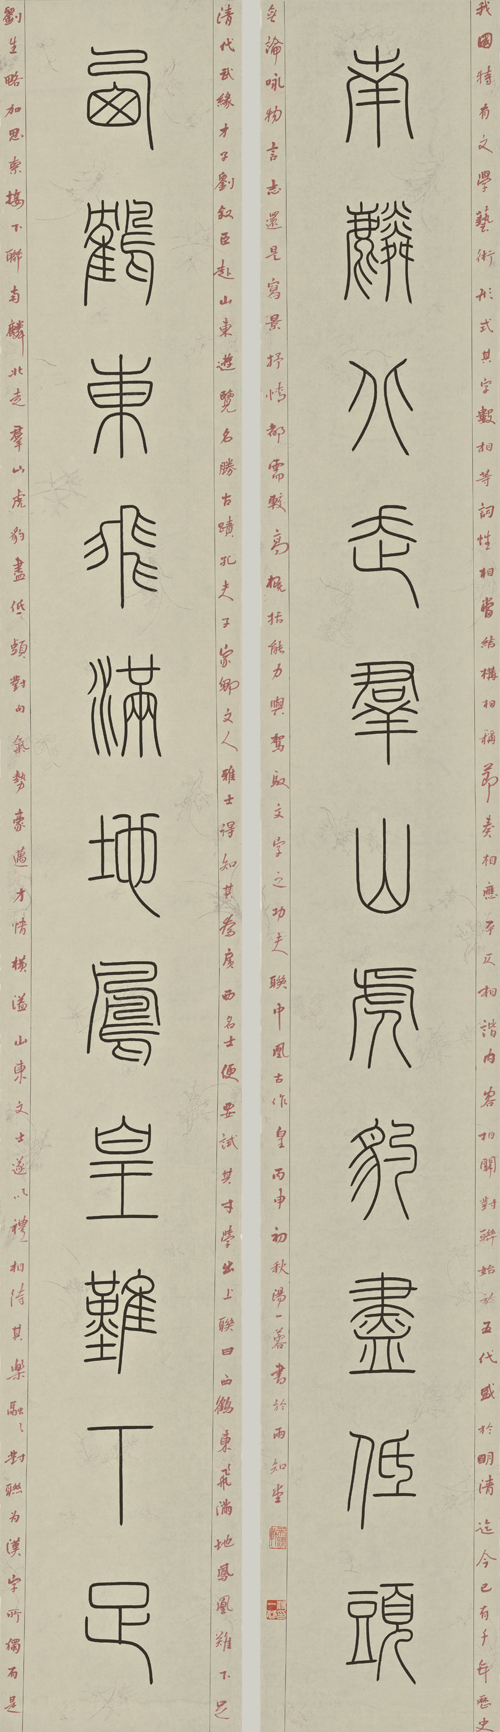 清代武緣才子劉叙臣赴山東遊覽名勝古蹟孔夫子家鄉文人雅士得知其為廣西名士便要試其才學出上聯曰西鶴東飛滿地鳳凰難下足
西鶴東飛滿地鳳皇難下足
劉生略加思索接下聯南麟北走羣山虎豹盡低頭對句氣勢豪邁才情橫溢山東文士遂以禮相待其樂融々對聯为漢字所獨有是
我國特有文學藝術形式其字數相等詞性相當結構相稱節奏相應平仄相諧內容相關對聯始於五代盛於明清迄今已有千年歷史
南麟北走羣山虎豹盡低頭
無論咏物言志還是寫景抒情都需較高概括能力與駕馭文字之功夫聯中凰古作皇丙申初秋陽一蓉書於雨知堂